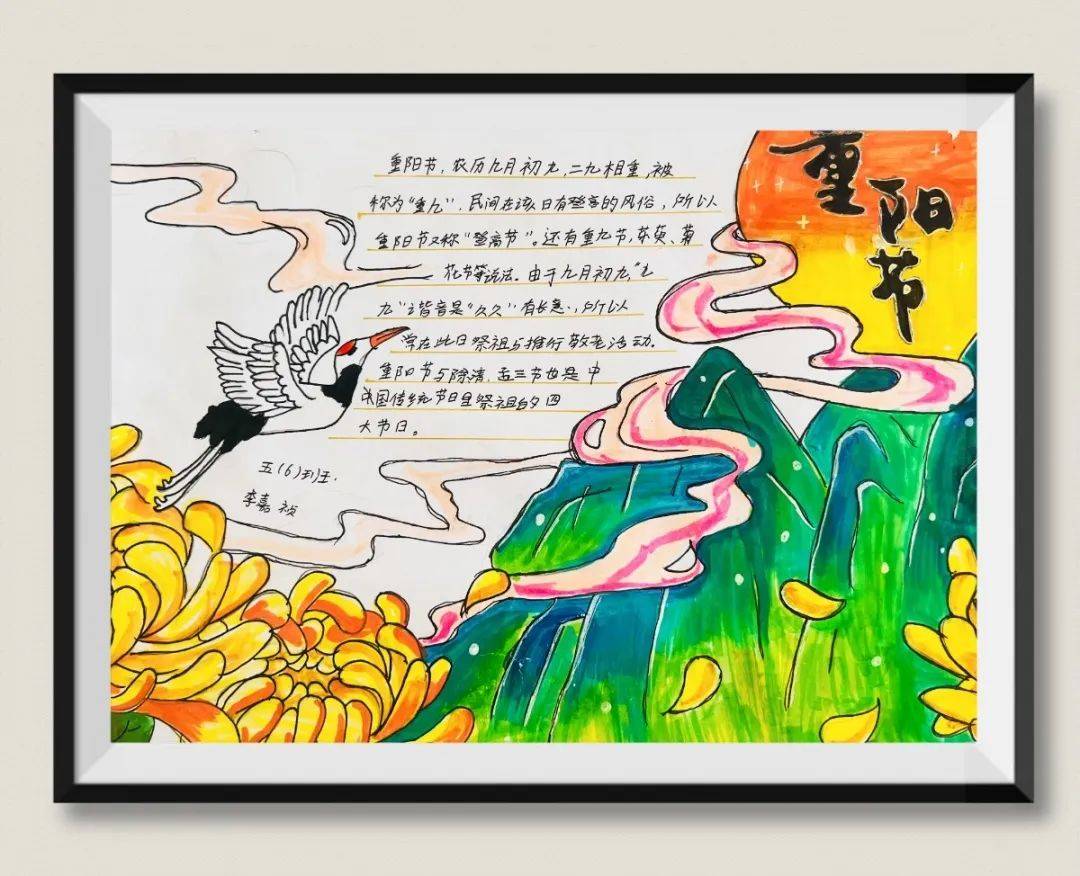 重阳节
重阳节，农历九月初九，二九相重，被
称为“重九”，民间在该日有登高的风俗，所以
重阳节又称“登高节”。还有重九节，茱萸、菊
花节等说法。由于九月初九，“九
九”谐音是“久久”有长意，所以
常在此日祭祖与推行敬老活动。
重阳节与除清、盂三节也是中
国传统节日里祭祖的四
大节日。
五（6）班
李嘉祯